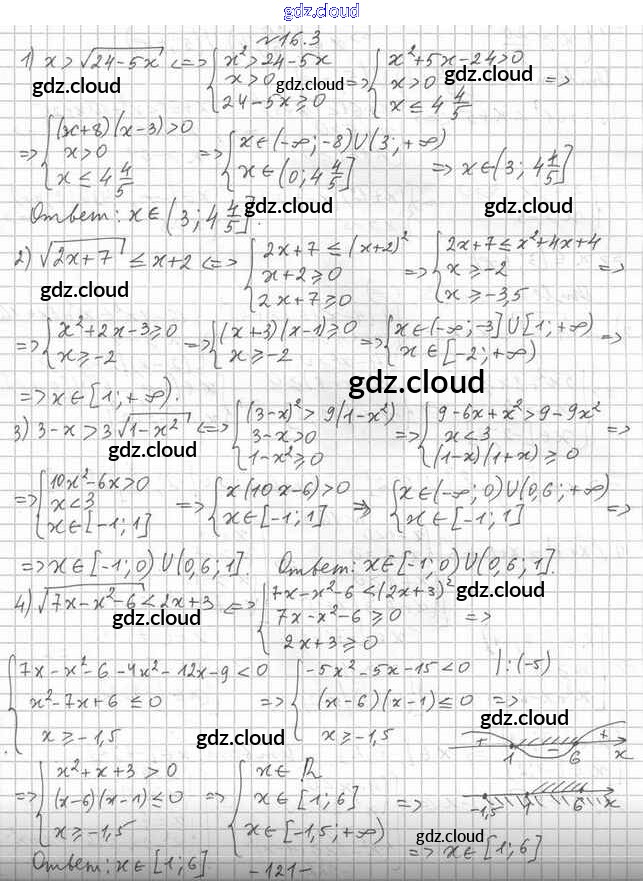 gdz.cloud
№16.3
1) x > √(24-5x) <=> { x² > 24-5x ; x > 0 ; 24-5x ≥ 0 => { x²+5x-24>0 ; x>0 ; x ≤ 4 4/5 =>
gdz.cloud gdz.cloud gdz.cloud
=> { (x+8)(x-3)>0 ; x>0 ; x ≤ 4 4/5 => { x∈(-∞;-8)∪(3;+∞) ; x∈(0; 4 4/5] => x∈(3; 4 4/5]
Ответ: x∈(3; 4 4/5].
gdz.cloud gdz.cloud
2) √(2x+7) ≤ x+2 <=> { 2x+7 ≤ (x+2)² ; x+2≥0 ; 2x+7≥0 => { 2x+7 ≤ x²+4x+4 ; x ≥ -2 ; x ≥ -3,5 =>
gdz.cloud
=> { x²+2x-3≥0 ; x≥-2 => { (x+3)(x-1)≥0 ; x≥-2 => { x∈(-∞;-3]∪[1;+∞) ; x∈[-2;+∞) =>
=> x∈[1;+∞).
gdz.cloud
3) 3-x > 3√(1-x²) <=> { (3-x)² > 9(1-x²) ; 3-x>0 ; 1-x²≥0 => { 9-6x+x² > 9-9x² ; x<3 ; (1-x)(1+x) ≥ 0 =>
gdz.cloud gdz.cloud
=> { 10x²-6x>0 ; x<3 ; x∈[-1;1] => { x(10x-6)>0 ; x∈[-1;1] => { x∈(-∞;0)∪(0,6;+∞) ; x∈[-1;1] =>
=> x∈[-1;0)∪(0,6;1]. Ответ: x∈[-1;0)∪(0,6;1].
4) √(7x-x²-6) < 2x+3 <=> { 7x-x²-6 < (2x+3)² ; 7x-x²-6 ≥ 0 ; 2x+3 ≥ 0 =>
gdz.cloud gdz.cloud
{ 7x-x²-6-4x²-12x-9<0 ; x²-7x+6 ≤ 0 ; x ≥ -1,5 => { -5x²-5x-15<0 |:(-5) ; (x-6)(x-1)≤0 ; x ≥ -1,5 =>
gdz.cloud gdz.cloud
+ 1 - 6 + x
=> { x²+x+3>0 ; (x-6)(x-1)≤0 ; x≥-1,5 => { x∈R ; x∈[1;6] ; x∈[-1,5;+∞) =>
-1,5 1 6 x
gdz.cloud
=> x∈[1;6]
Ответ: x∈[1;6]
-121-